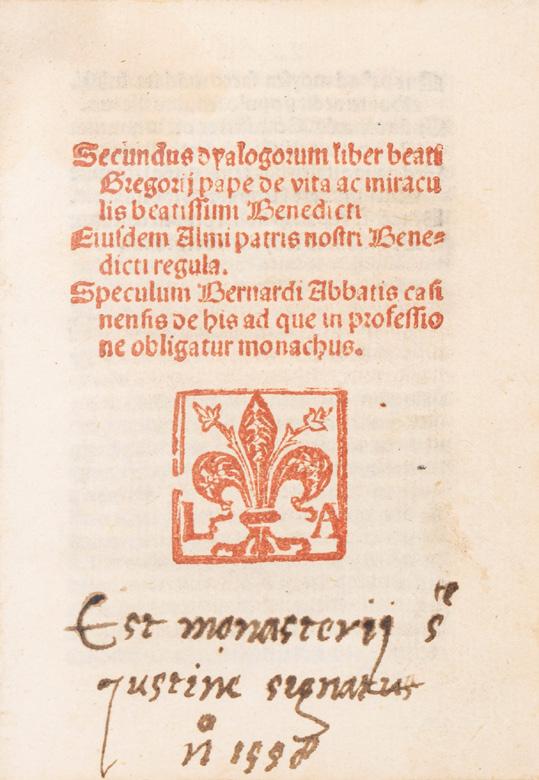 Secundus dyalogorum liber beati
Gregorij pape de vita ac miracu
lis beatissimi Benedicti
Eiusdem Almi patris nostri Bene-
dicti regula.
Speculum Bernardi Abbatis casi
nensis de his ad que in professio
ne obligatur monachus.
L A
Est monasterij s^te
Justine signatus
n^o 1558